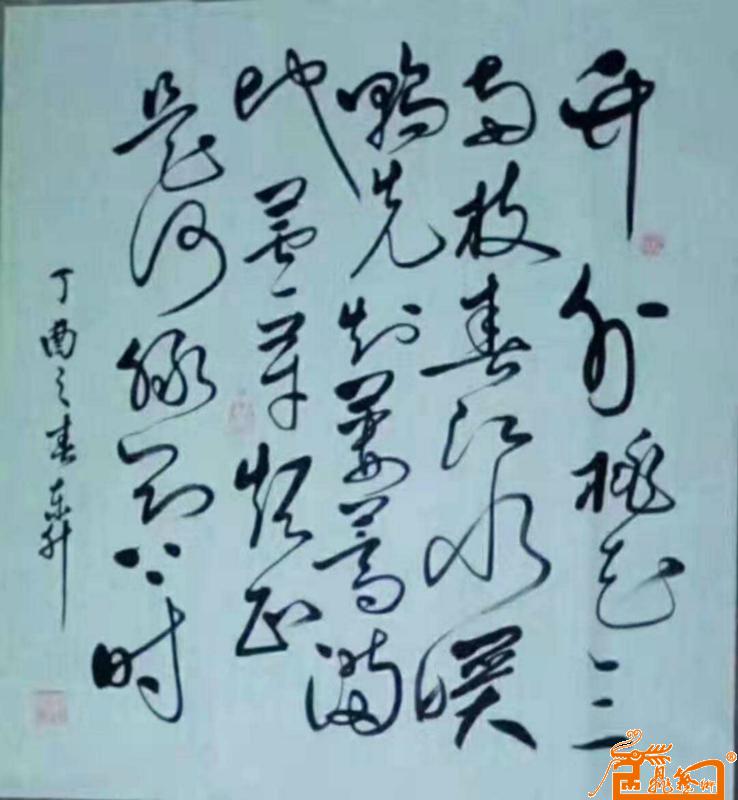 竹外桃花三
两枝春江水暖
鸭先知蒌蒿满
地芦芽短正
是河豚欲上时
丁酉之春东升